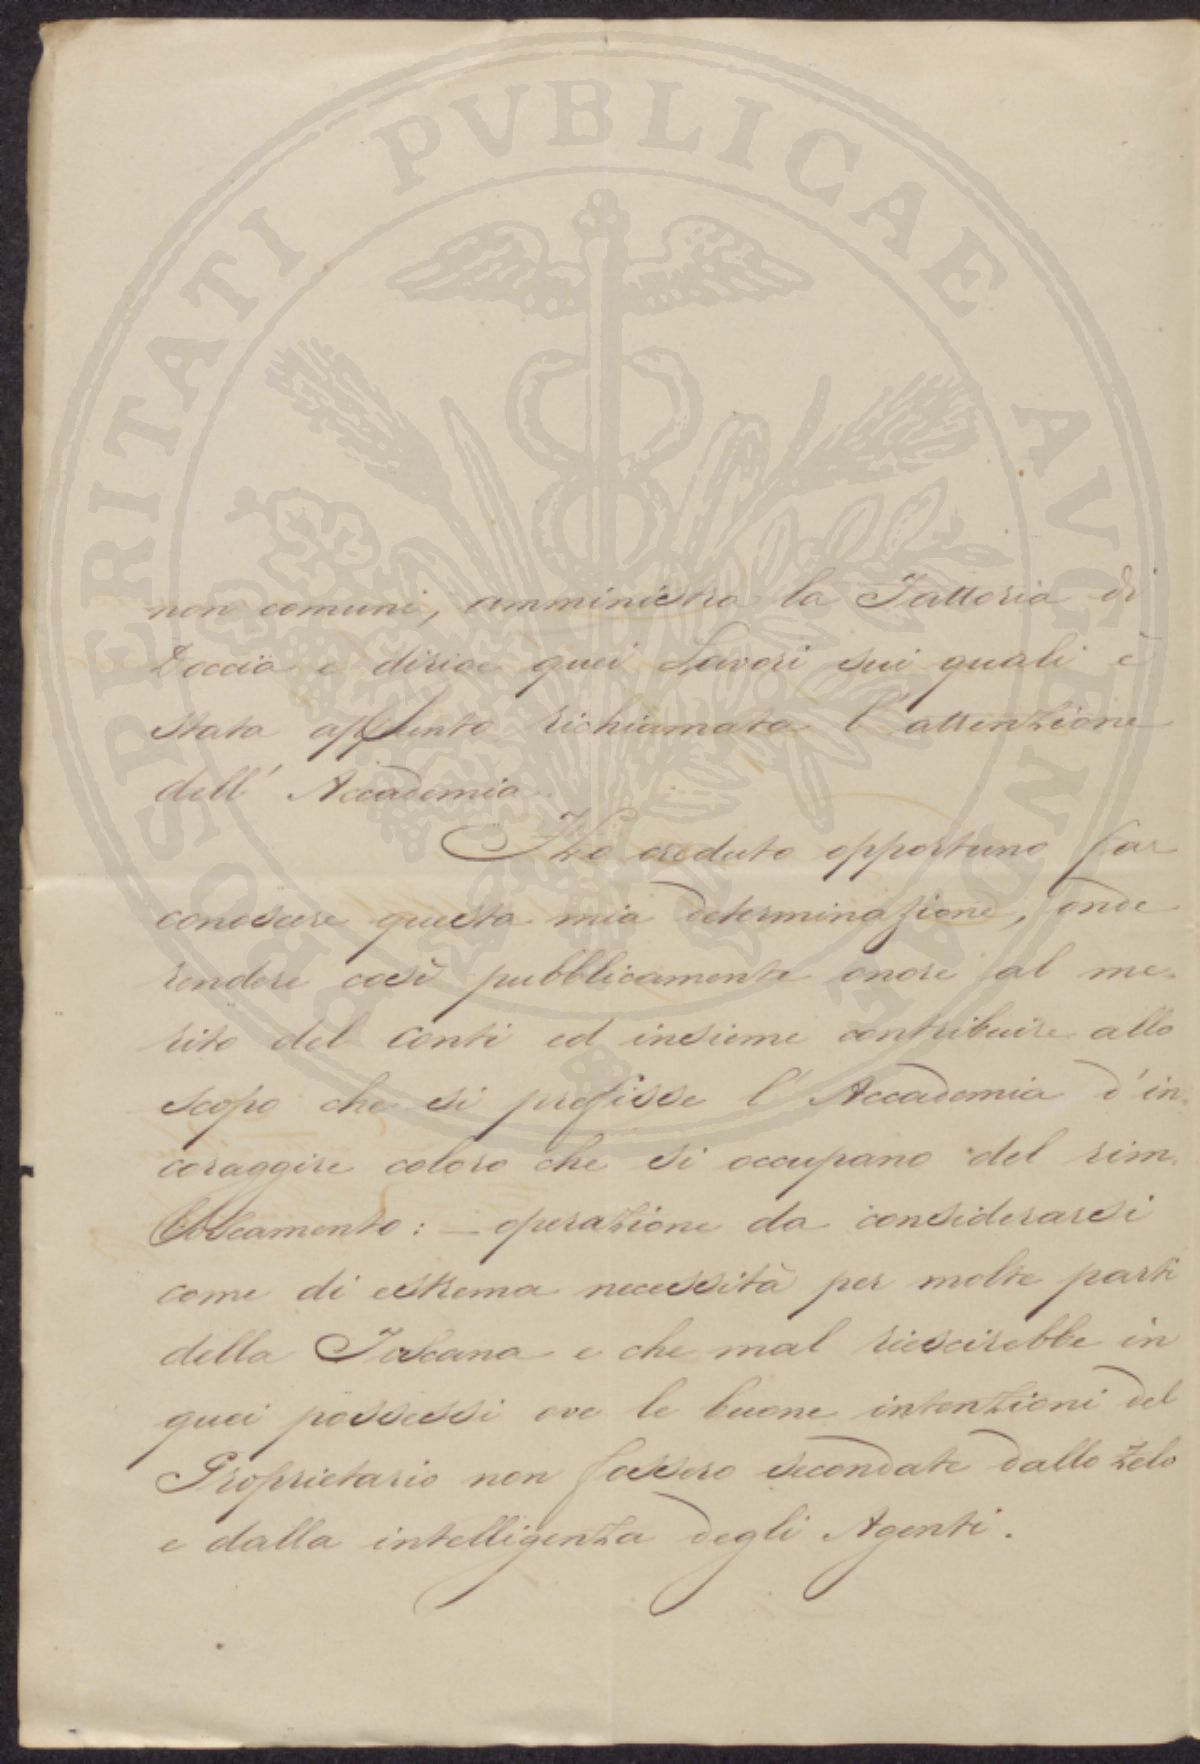 PROSPERITATI PVBLICAE AVGENDAE
non comuni, amministra la Fattoria di
Doccia e dirige quei Lavori sui quali è
stata appunto richiamata l'attenzione
dell'Accademia.
Ho creduto opportuno far
conoscere questa mia determinazione, onde
rendere così pubblicamente onore al me-
rito del Conti ed insieme contribuire allo
scopo che si prefisse l'Accademia d'in-
coraggire coloro che si occupano del rim-
boscamento: — operazione da considerarsi
come di estrema necessità per molte parti
della Toscana e che mal riescirebbe in
quei possessi ove le buone intenzioni del
Proprietario non fossero secondate dallo zelo
e dalla intelligenza degli Agenti.